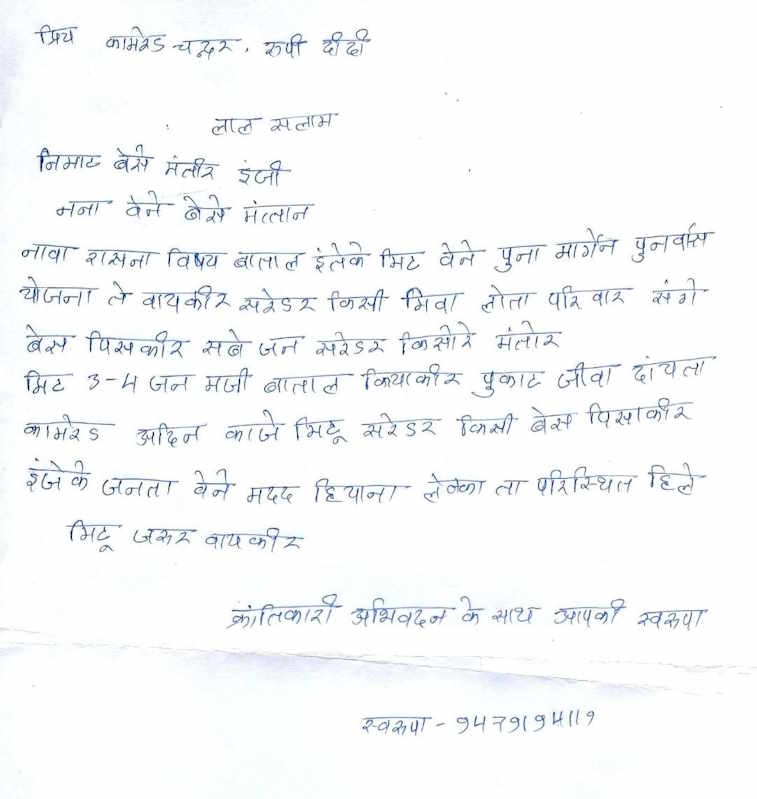 प्रिय कामरेड चन्दर, रुपी दीदी
लाल सलाम
निमाट बेसे मंतीर इंजी
नना वेने बेसे मंत्तान
नावा रासना विषय बाताल इंतेके मिट वेने पुना मार्गेन पुनर्वास
योजना ते वायकीर सरेडर किसी मिवा लोता परिवार संगे
बेस पिसकीर सबे जन सरेडर किसोरे मंतोर
मिट 3-4 जन मजी बाताल कियाकीर पुकाट जीवा दांयता
कामरेड अदिन काजे मिटू सरेडर किसी बेस पिसाकीर
इंजेके जनता वेने मदद हियाना लेव्का ता परिस्थित हिले
मिटू जरुर वायकीर
क्रांतिकारी अभिवदन के साथ आपकी स्वरुपा
स्वरुपा - ९४७९१९४११९